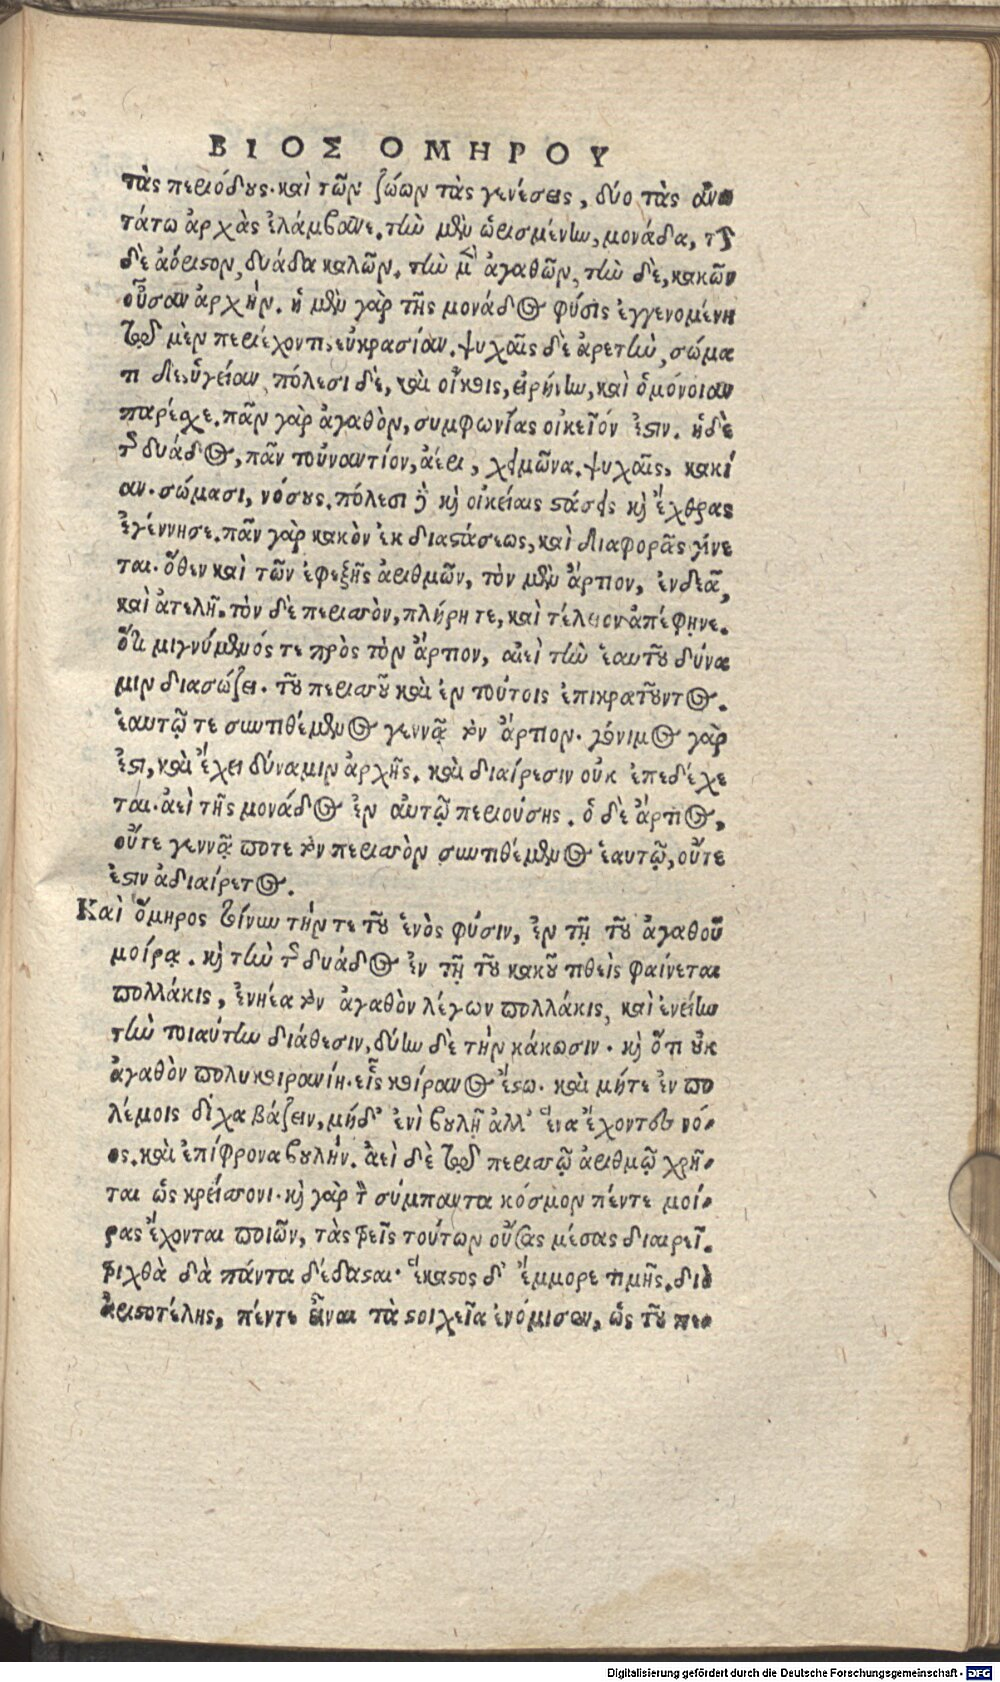 ΒΙΟΣ ΟΜΗΡΟΥ
τὰς περιόδους. καὶ τῶν ζώων τὰς γενέσεις, δύο τὰς ἀνω
τάτω ἀρχὰς ἐλάμβανε. τὴν μὲν ὡρισμένην, μονάδα, τὴν
δὲ ἀόριστον, δυάδα καλῶν. τὴν μὲν ἀγαθῶν, τὴν δὲ, κακῶν
οὖσαν ἀρχήν. ἡ μὲν γὰρ τῆς μονάδος φύσις ἐγγενομένη
τῷ μὲν περιέχοντι, εὐκρασίαν. ψυχαῖς δὲ ἀρετὴν, σώμα
τι δὲ, ὑγείαν, πόλεσι δὲ, καὶ οἴκοις, εἰρήνην, καὶ ὁμόνοιαν
παρέσχε. πᾶν γὰρ ἀγαθὸν, συμφωνίας οἰκεῖόν ἐστιν. ἡ δὲ
τῆς δυάδος, πᾶν τοὐναντίον, ἀέρι, χειμῶνα. ψυχαῖς, κακί
αν. σώμασι, νόσους. πόλεσι δὲ καὶ οἰκείαις στάσεις καὶ ἔχθρας
ἐγέννησε. πᾶν γὰρ κακὸν ἐκ διαστάσεως, καὶ διαφορᾶς γίνε
ται. ὅθεν καὶ τῶν ἐφεξῆς ἀριθμῶν, τὸν μὲν ἄρτιον, ἐνδεᾶ,
καὶ ἀτελῆ. τὸν δὲ περισσὸν, πλήρη τε, καὶ τέλειον ἀπέφηνε.
ὅτι μιγνύμενός τε πρὸς τὸν ἄρτιον, αἰεὶ τὴν ἑαυτοῦ δύνα
μιν διασώζει. τοῦ περισσοῦ καὶ ἐν τούτοις ἐπικρατοῦντος.
ἑαυτῷ τε συντιθέμενος γεννᾷ τὸν ἄρτιον. γόνιμος γὰρ
ἐστι, καὶ ἔχει δύναμιν ἀρχῆς. καὶ διαίρεσιν οὐκ ἐπεδέχε
ται. ἀεὶ τῆς μονάδος ἐν αὐτῷ περιούσης. ὁ δὲ ἄρτιος,
οὔτε γεννᾷ ποτε τὸν περισσὸν συντιθέμενος ἑαυτῷ, οὔτε
ἐστιν ἀδιαίρετος.
Καὶ ὅμηρος τοίνυν τήν τε τοῦ ἑνὸς φύσιν, ἐν τῇ τοῦ ἀγαθοῦ
μοίρᾳ. καὶ τὴν τῆς δυάδος ἐν τῇ τοῦ κακοῦ τιθεὶς φαίνεται
πολλάκις, ἐνηέα τὸν ἀγαθὸν λέγων πολλάκις, καὶ ἐνείην
τὴν τοιαύτην διάθεσιν, δύην δὲ τὴν κάκωσιν. καὶ ὅτι οὐκ
ἀγαθὸν πολυκοιρανίη. εἷς κοίρανος ἔστω. καὶ μήτε ἐν πο
λέμοις δίχα βάζειν, μήδ' ἐνὶ βουλῇ ἀλλ' ἕνα ἔχοντες νό-
ος. καὶ ἐπίφρονα βουλήν. ἀεὶ δὲ τῷ περισσῷ ἀριθμῷ χρῆ-
ται ὡς κρείσσονι. καὶ γὰρ τὸν σύμπαντα κόσμον πέντε μοί-
ρας ἔχονται ποιῶν, τὰς τρεῖς τούτων οὔσας μέσας διαιρεῖ.
τριχθὰ δὰ πάντα δέδασται. ἕκαστος δ' ἔμμορε τιμῆς. διὸ
ἀριστοτέλης, πέντε εἶναι τὰ στοιχεῖα ἐνόμισεν, ὡς τοῦ πε-
Digitalisierung gefördert durch die Deutsche Forschungsgemeinschaft - DFG